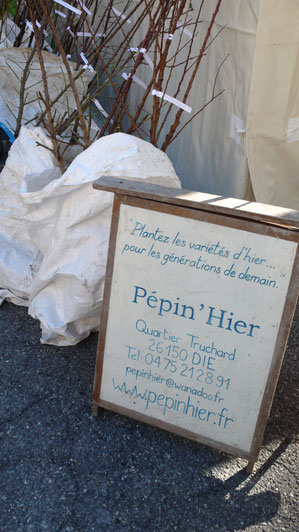 "Plantez les variétés d'hier...
pour les générations de demain."
Pépin'Hier
Quartier Truchard
26150 DIE
Tel: 04 75 21 28 91
pepinhier@wanadoo.fr
www.pepinhier.fr